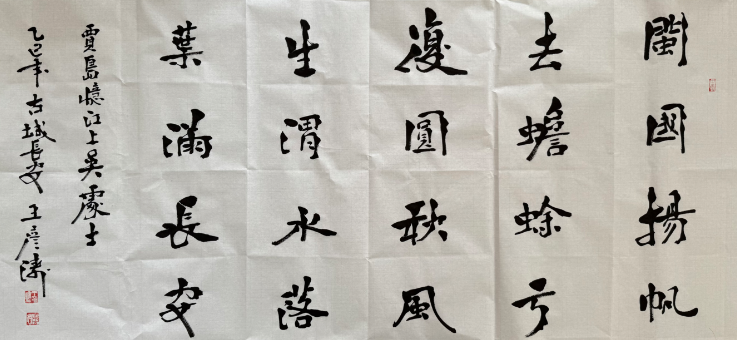 閩國揚帆
去蟾蜍亏
復圓秋風
生渭水落
葉滿長安
賈島憶江上吴處士
乙巳年古城長安王彦濤